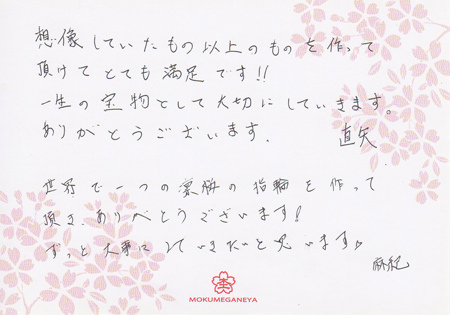 想像していたもの以上のものを作って
頂けてとても満足です!!
一生の宝物として大切にしていきます。
ありがとうございます.
直矢
世界で一つの素敵の指輪を作って
頂き、ありがとうございます!
ずっと大事にしていきたいと思います♪
麻紀
MOKUMEGANEYA